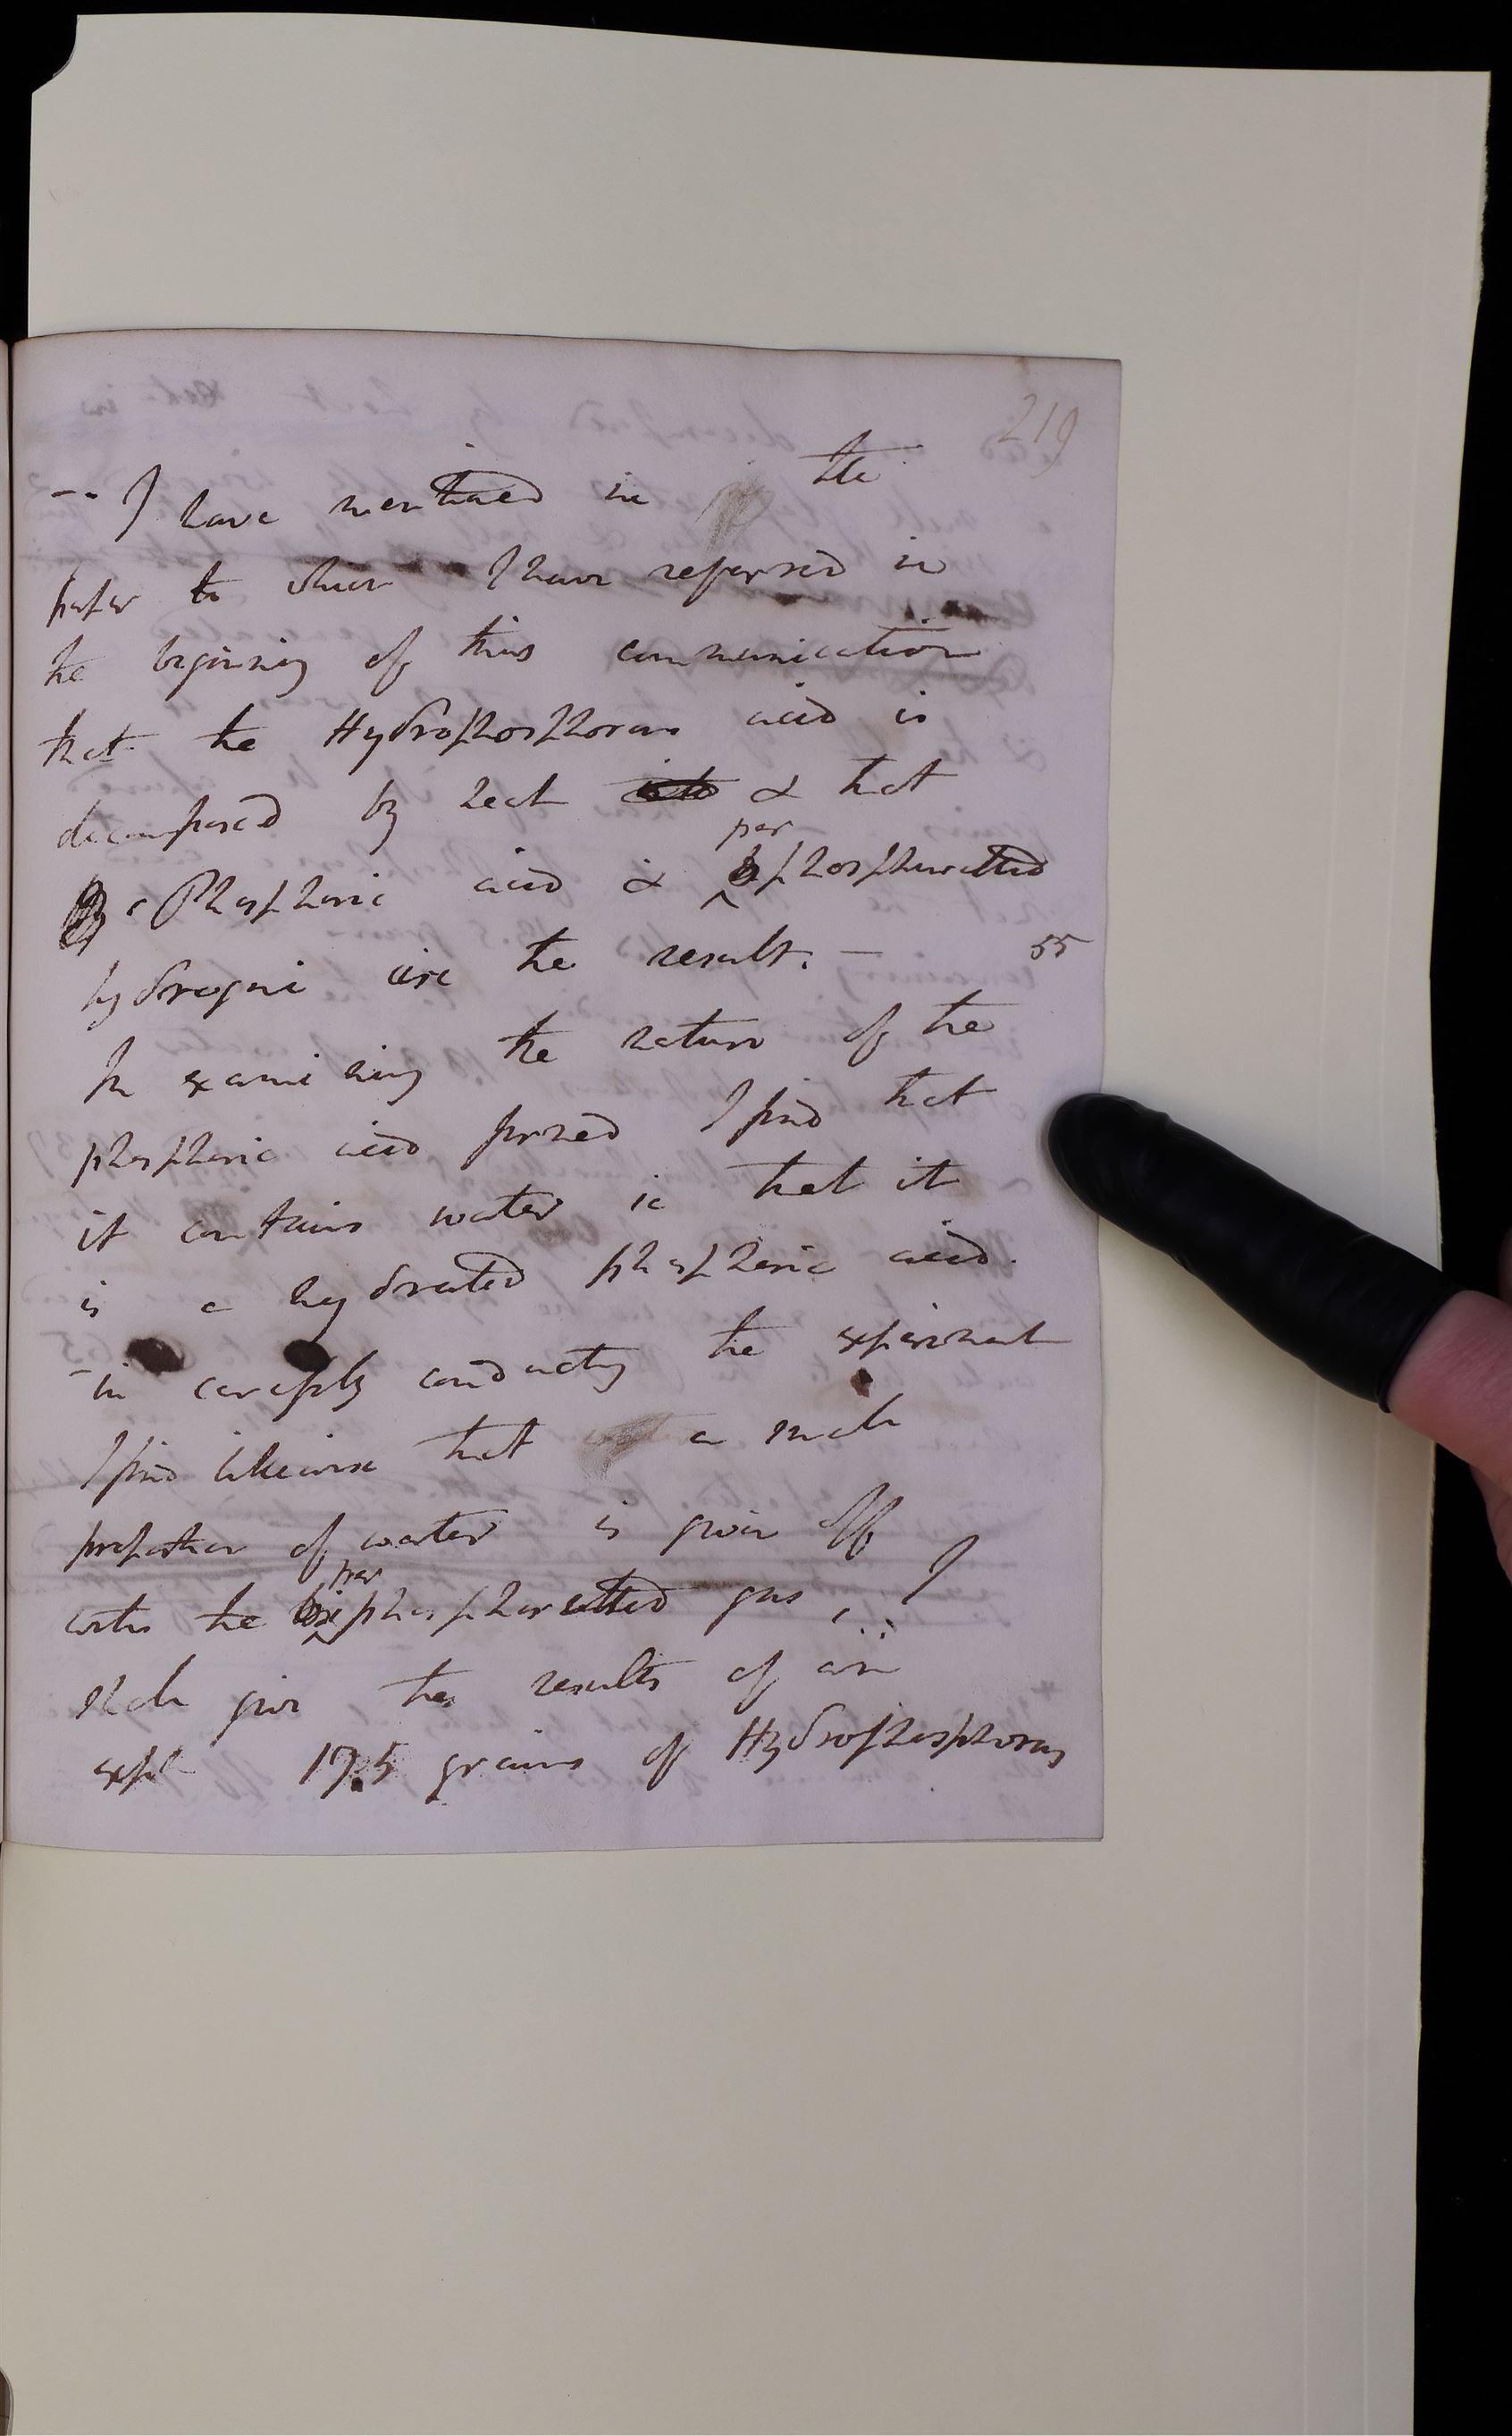 219
-- I have mentioned in the
paper to which I have referred in
the beginning of this communication
that the Hydrophosphorous acid is
decomposed by heat into & that
Phosphoric acid & per phosphuretted
hydrogene are the result. —
55
In examining the nature of the
phosphoric acid formed I find that
it contains water ie that it
is a hydrated phosphoric acid.
- in carefully conducting the experiment
I find likewise that a small
proportion of water is given off
with the bi per phosphuretted gas , .: I
shall give the results of an
expt 17.5 grains of Hydrophosphorous